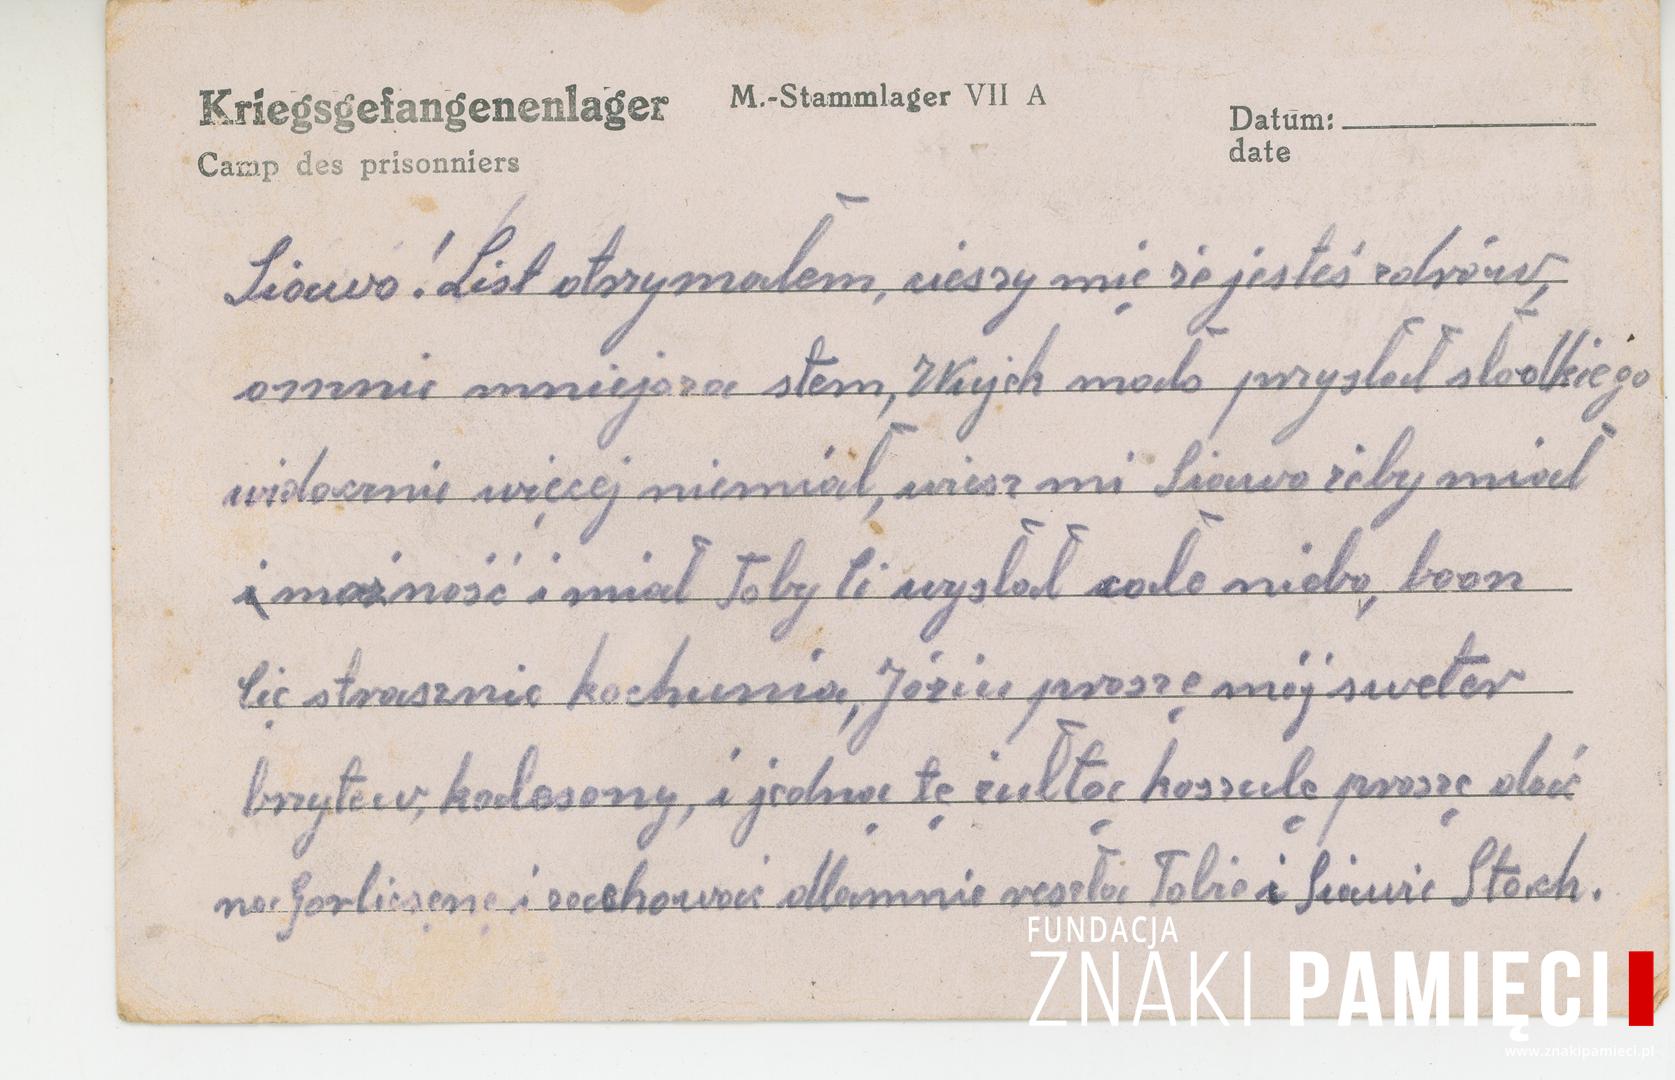 Kriegsgefangenenlager
M.-Stammlager VII A
Datum:
date
Camp des prisonniers
Siawo! List otrzymałem, cieszy mię że jesteś zdrów,
omnie mniejsza stem, Wujek mało przysłał słodkiego
widocznie więcej niemiał, wiesz mi Siawo żeby miał
i możność i miał Toby Ci wysłał całe niebo, boon
Cię strasznie kochunia, Józiu proszę mój sweter
brzytew, kalesony, i jedną tę żułtą koszulę proszę dać
na i zachować dlamnie reszta Tobie i Siawie Stach.
FUNDACJA
ZNAKI PAMIĘCI
www.znakipamieci.pl